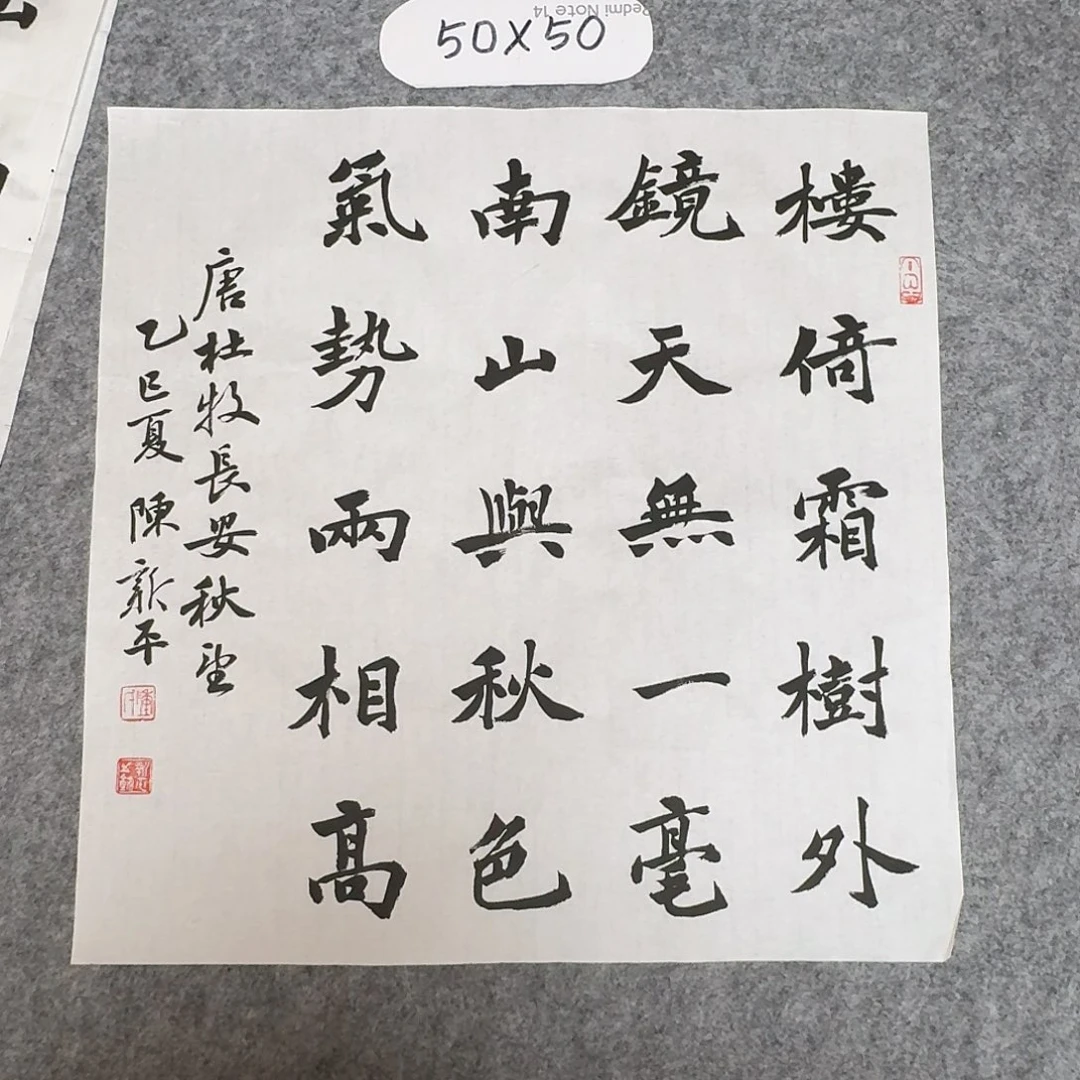 50X50
Redmi Note 14
樓倚霜樹外
鏡天無一毫
南山與秋色
氣勢兩相高
唐杜牧長安秋望
乙巳夏 陳新平